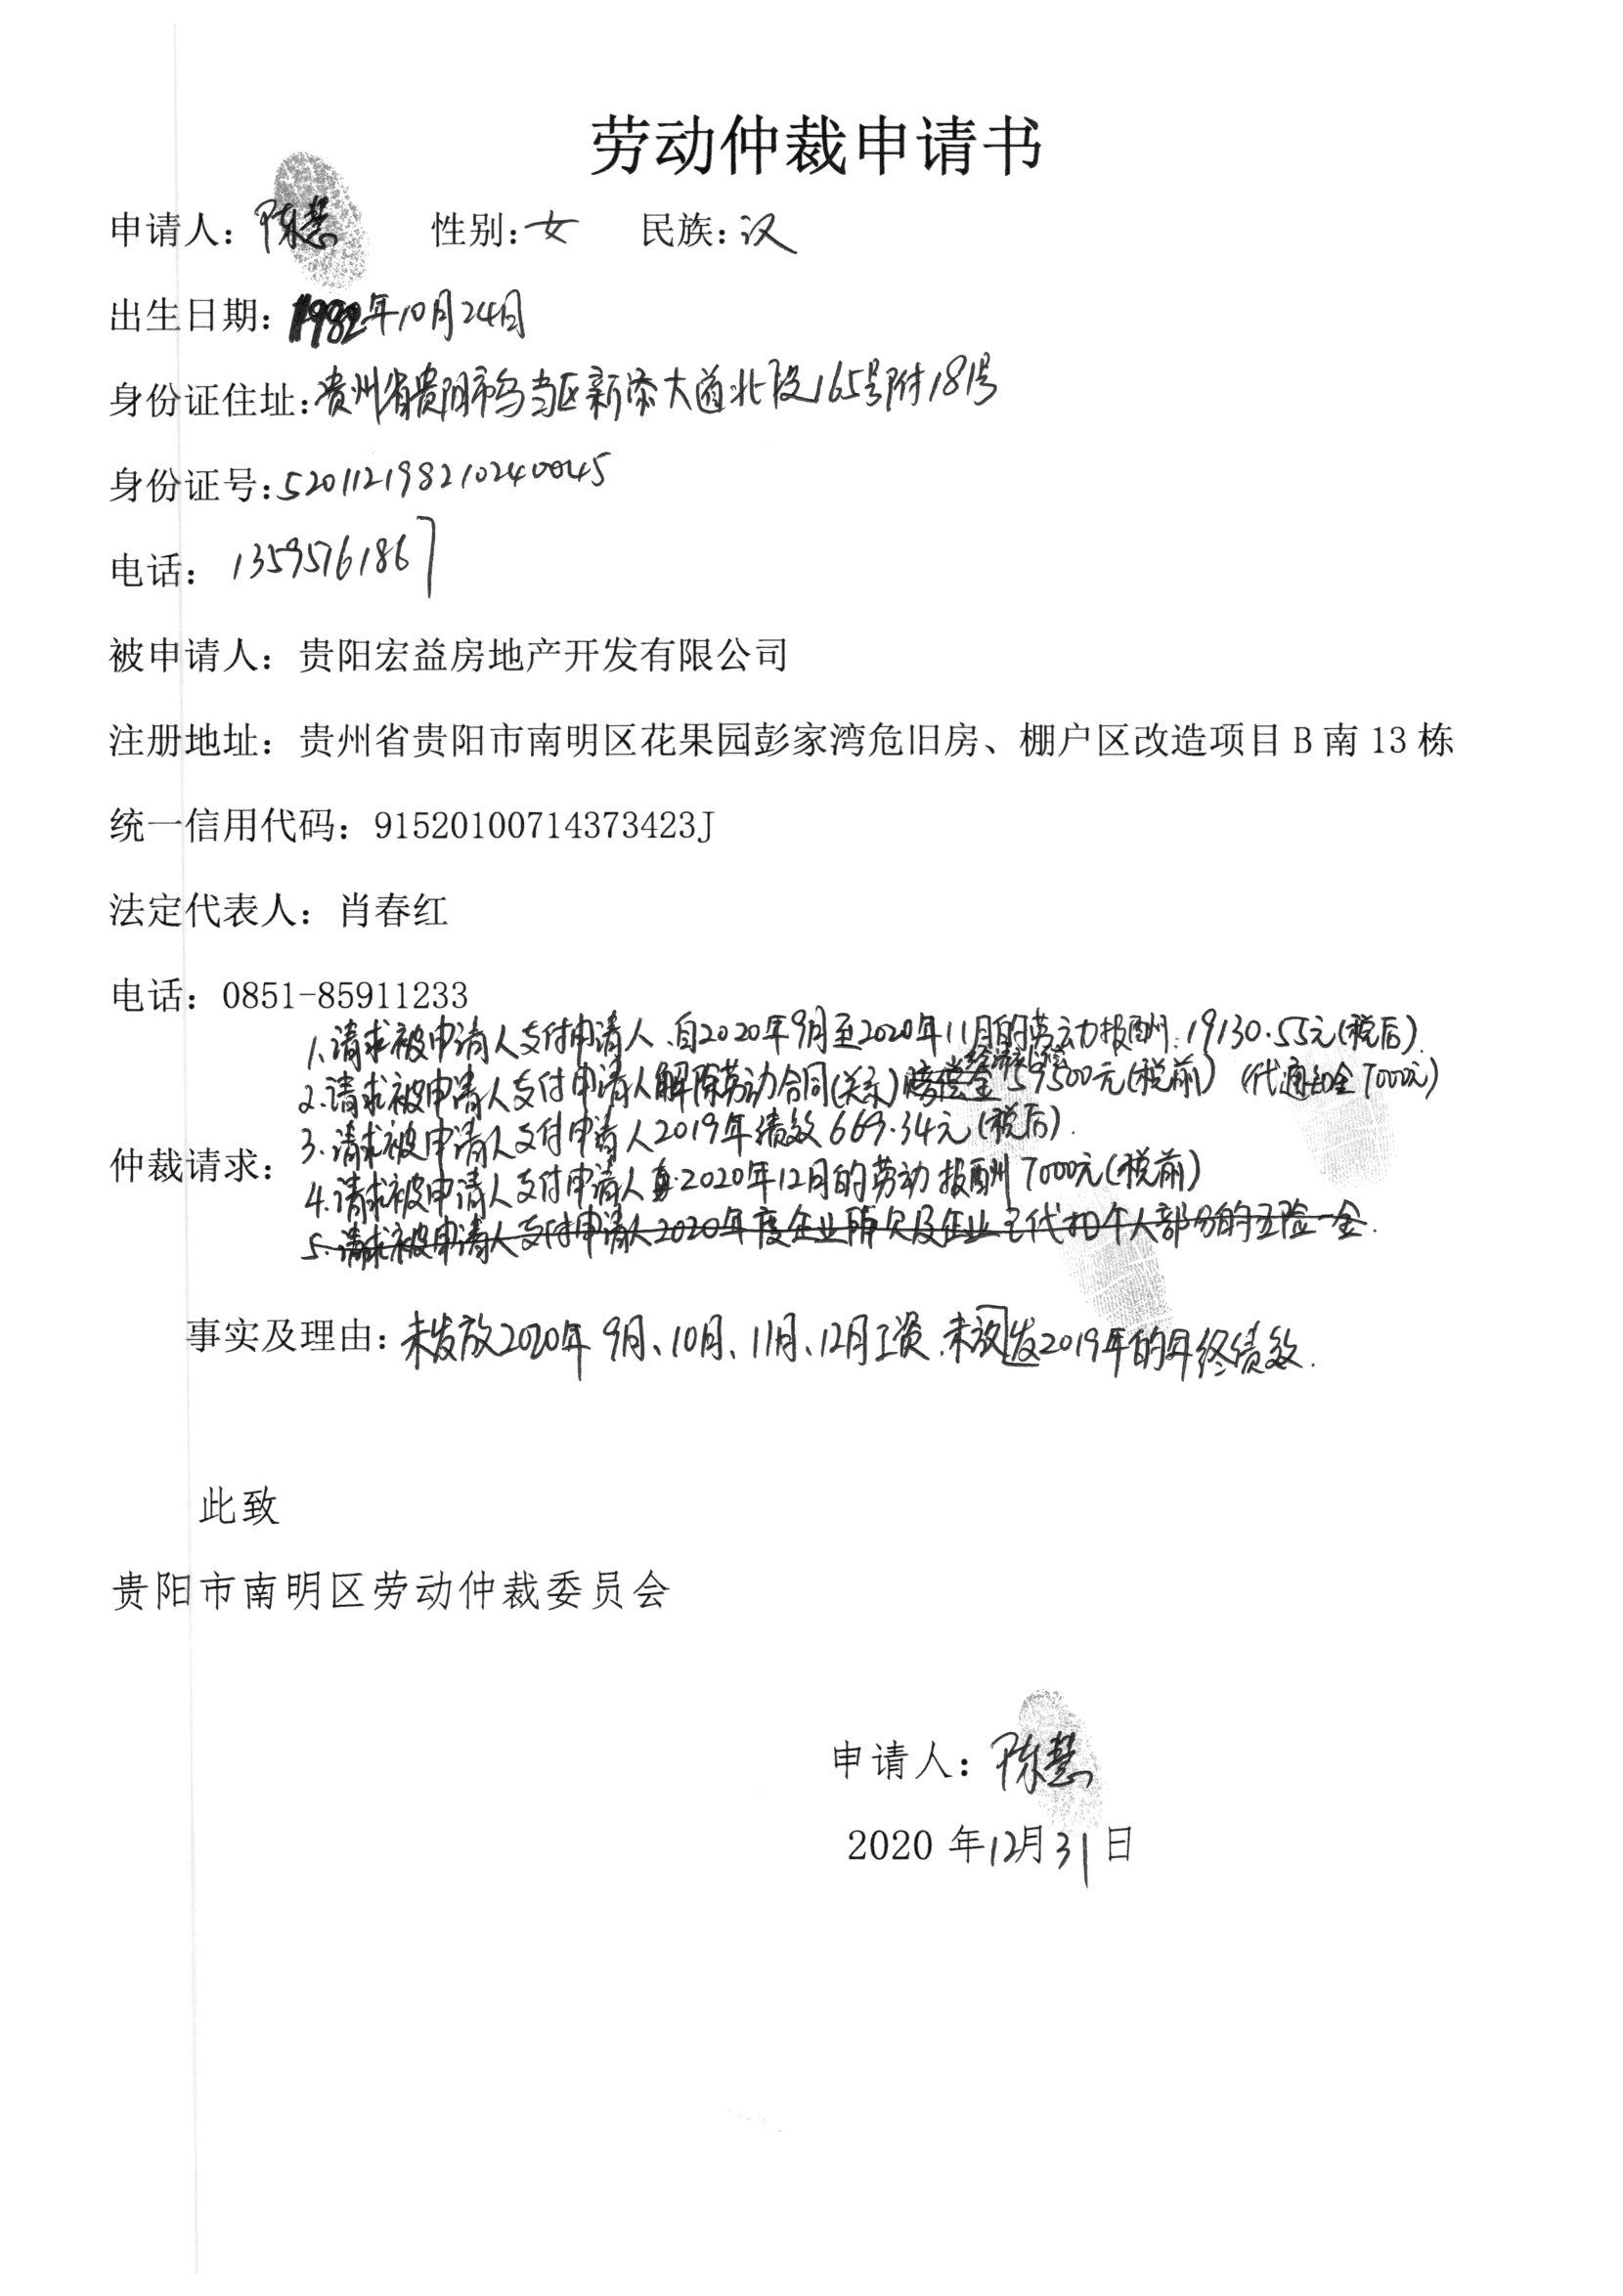 劳动仲裁申请书
申请人：陈慧 性别：女 民族：汉
出生日期：1982年10月24日
身份证住址：贵州省贵阳市乌当区新添大道北段165号附181号
身份证号：520112198210240045
电话：13595761867
被申请人：贵阳宏益房地产开发有限公司
注册地址：贵州省贵阳市南明区花果园彭家湾危旧房、棚户区改造项目 B 南 13 栋
统一信用代码：91520100714373423J
法定代表人：肖春红
电话：0851-85911233
仲裁请求：
1.请求被申请人支付申请人自2020年9月至2020年11月的劳动报酬19130.55元(税后).
2.请求被申请人支付申请人解除劳动合同(关系)经济补偿59500元(税前) (代通知金7000元)
3.请求被申请人支付申请人2019年绩效669.34元(税后).
4.请求被申请人支付申请人2020年12月的劳动报酬7000元(税前)
5.请求被申请人支付申请人2020年度企业所欠及企业已代扣个人部份的五险一金.
事实及理由：未发放2020年9月、10月、11月、12月工资.未发放2019年的年终绩效.
此致
贵阳市南明区劳动仲裁委员会
申请人：陈慧
2020 年12月31日